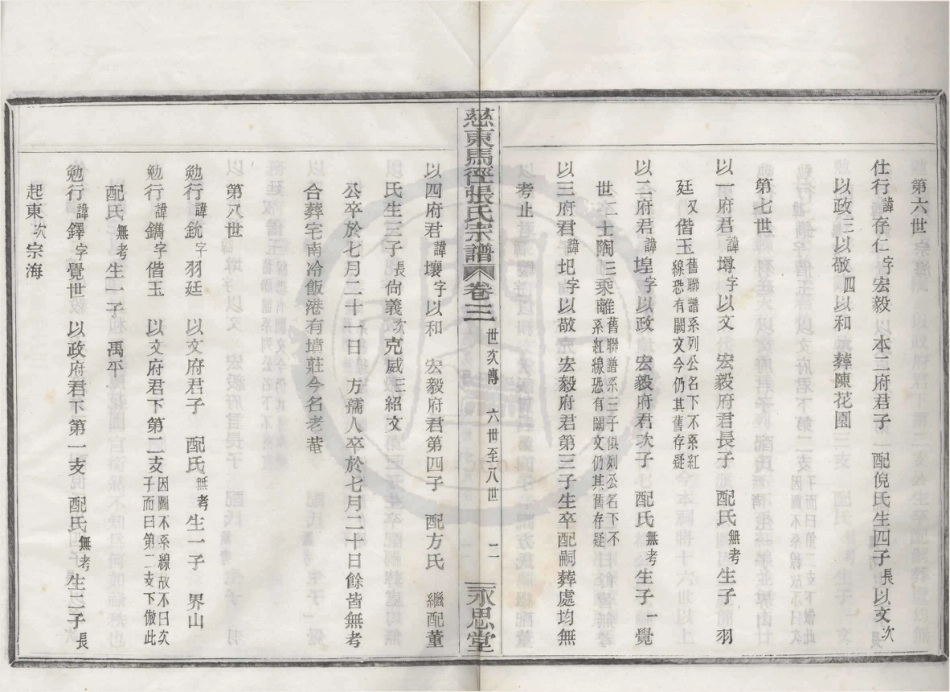 第六世
仕行諱存仁字宏毅 以本二府君子 配倪氏生四子長以文次
以政三以敬四以和 葬陳花園
第七世
以一府君諱墫字以文 宏毅府君長子 配氏無考生子一 羽
廷 又偕玉舊聯譜系列公名下不系紅
線恐有闕文今仍其舊存疑
以二府君諱堭字以政 宏毅府君次子 配氏無考生子一 覺
世 二士陶 三乘離舊聯譜系三子俱列公名下不
系紅線恐有闕文仍其舊存疑
以三府君諱圯字以敬 宏毅府君第三子生卒配嗣葬處均無
考止
慈東馬徑張氏宗譜 卷三 世次傳 六世至八世 二 永思堂
以四府君諱壤字以和 宏毅府君第四子 配方氏 繼配董
氏生三子長尙義次克威三紹文
公卒於七月二十一日 方孺人卒於七月二十日餘皆無考
合葬宅南冷飯港有墳莊今名老菴
第八世
勉行諱銃字羽廷 以文府君子 配氏無考生一子 界山
勉行諱鐫字偕玉 以文府君下第二支因圖不系線故不曰次
子而曰第二支下倣此
配氏無考生一子 禹平
勉行諱鐸字覺世 以政府君下第一支 配氏無考生二子長
起東次宗海